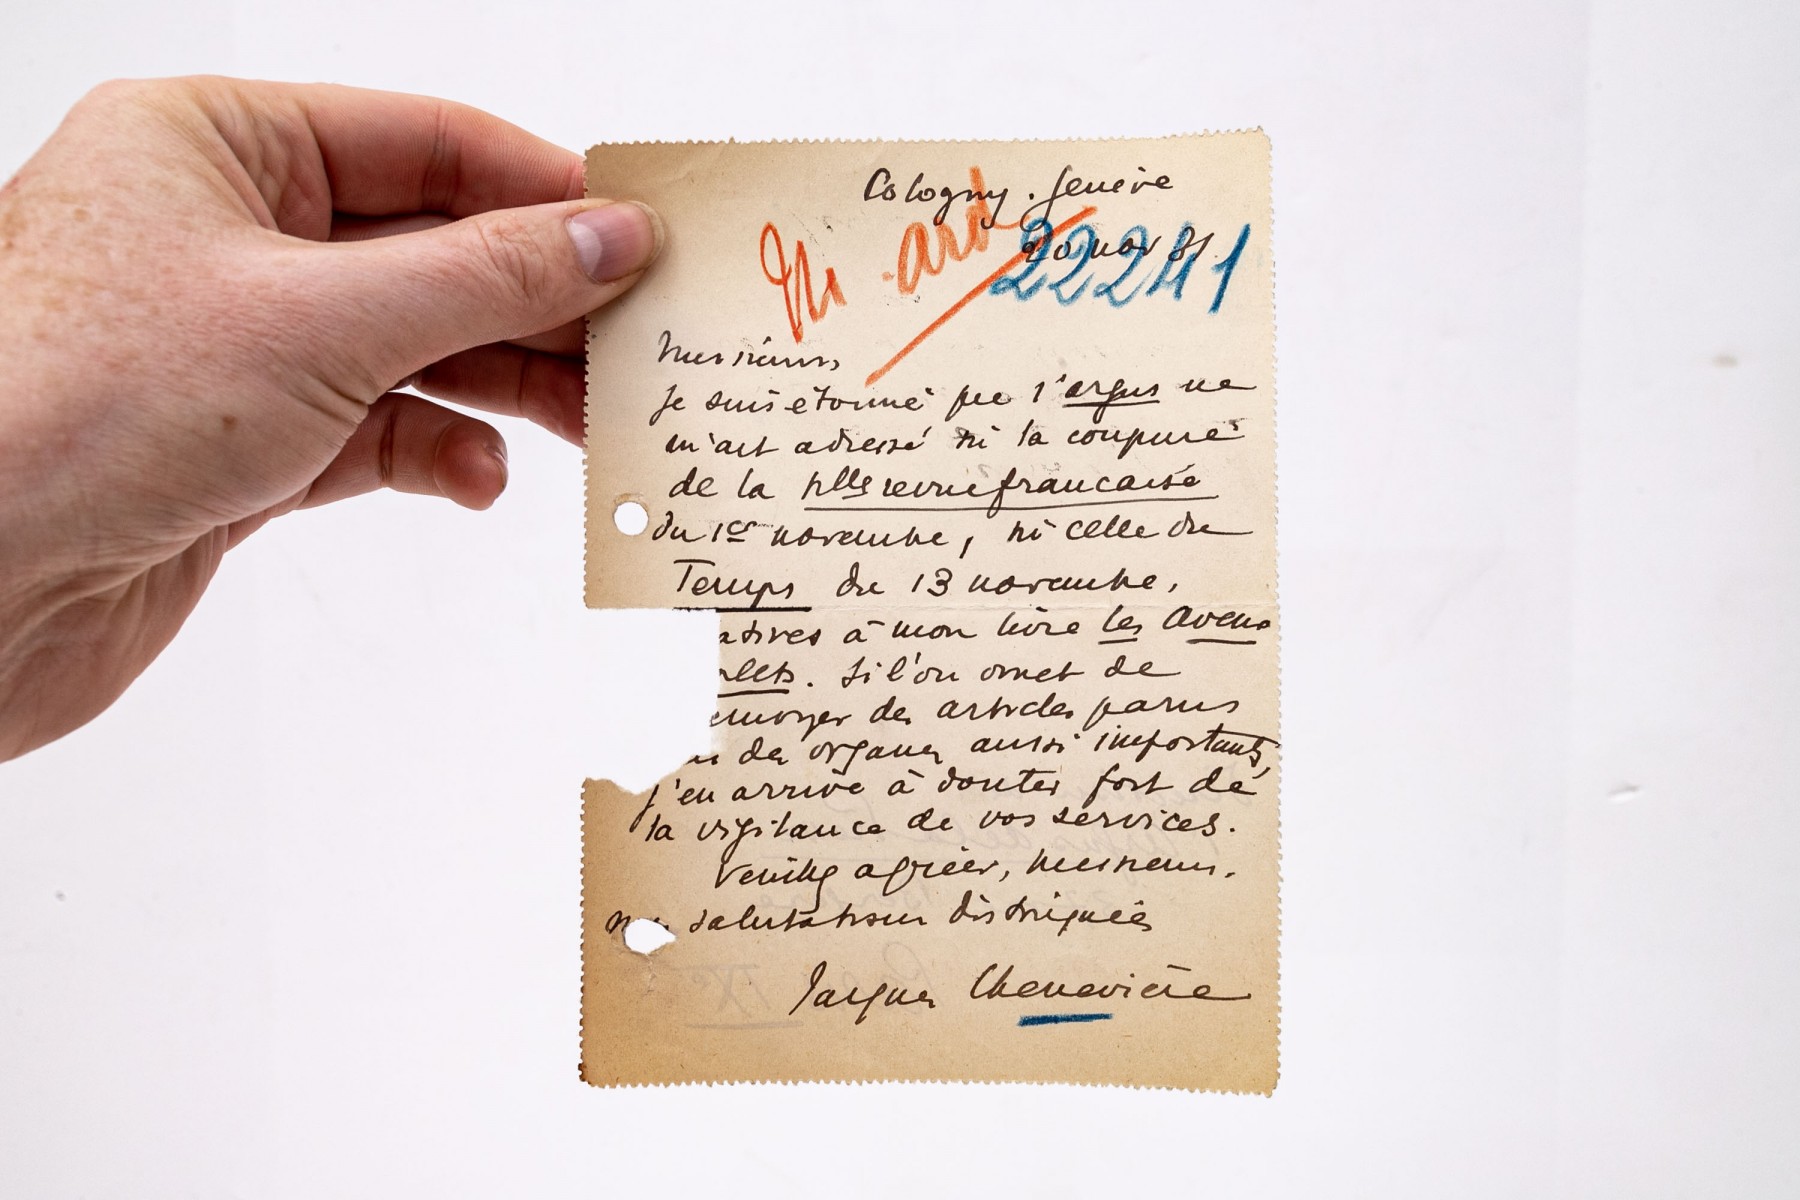 Cologny. Genève
20 nov 31.
22241
Messieurs,
Je suis étonné que l'argus ne
m'ait adressé ni la coupure
de la nlle revue française
du 1er novembre, ni celle du
Temps du 13 novembre,
atives à mon livre les Aveux
plets. Si l'on omet de
envoyer des articles parus
des organes aussi importants,
j'en arrive à douter fort de
la vigilance de vos services.
Veuillez agréer, Messieurs,
salutations distinguées
Jacques Chenevière